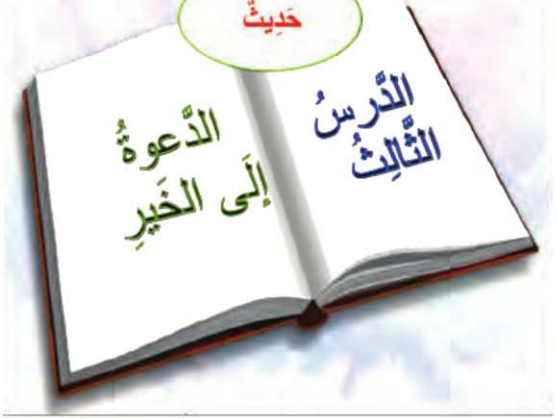 حَدِيثٌ
الدَّرسُ
الثَّالِثُ
الدَّعوةُ
إلَى الخَيرِ